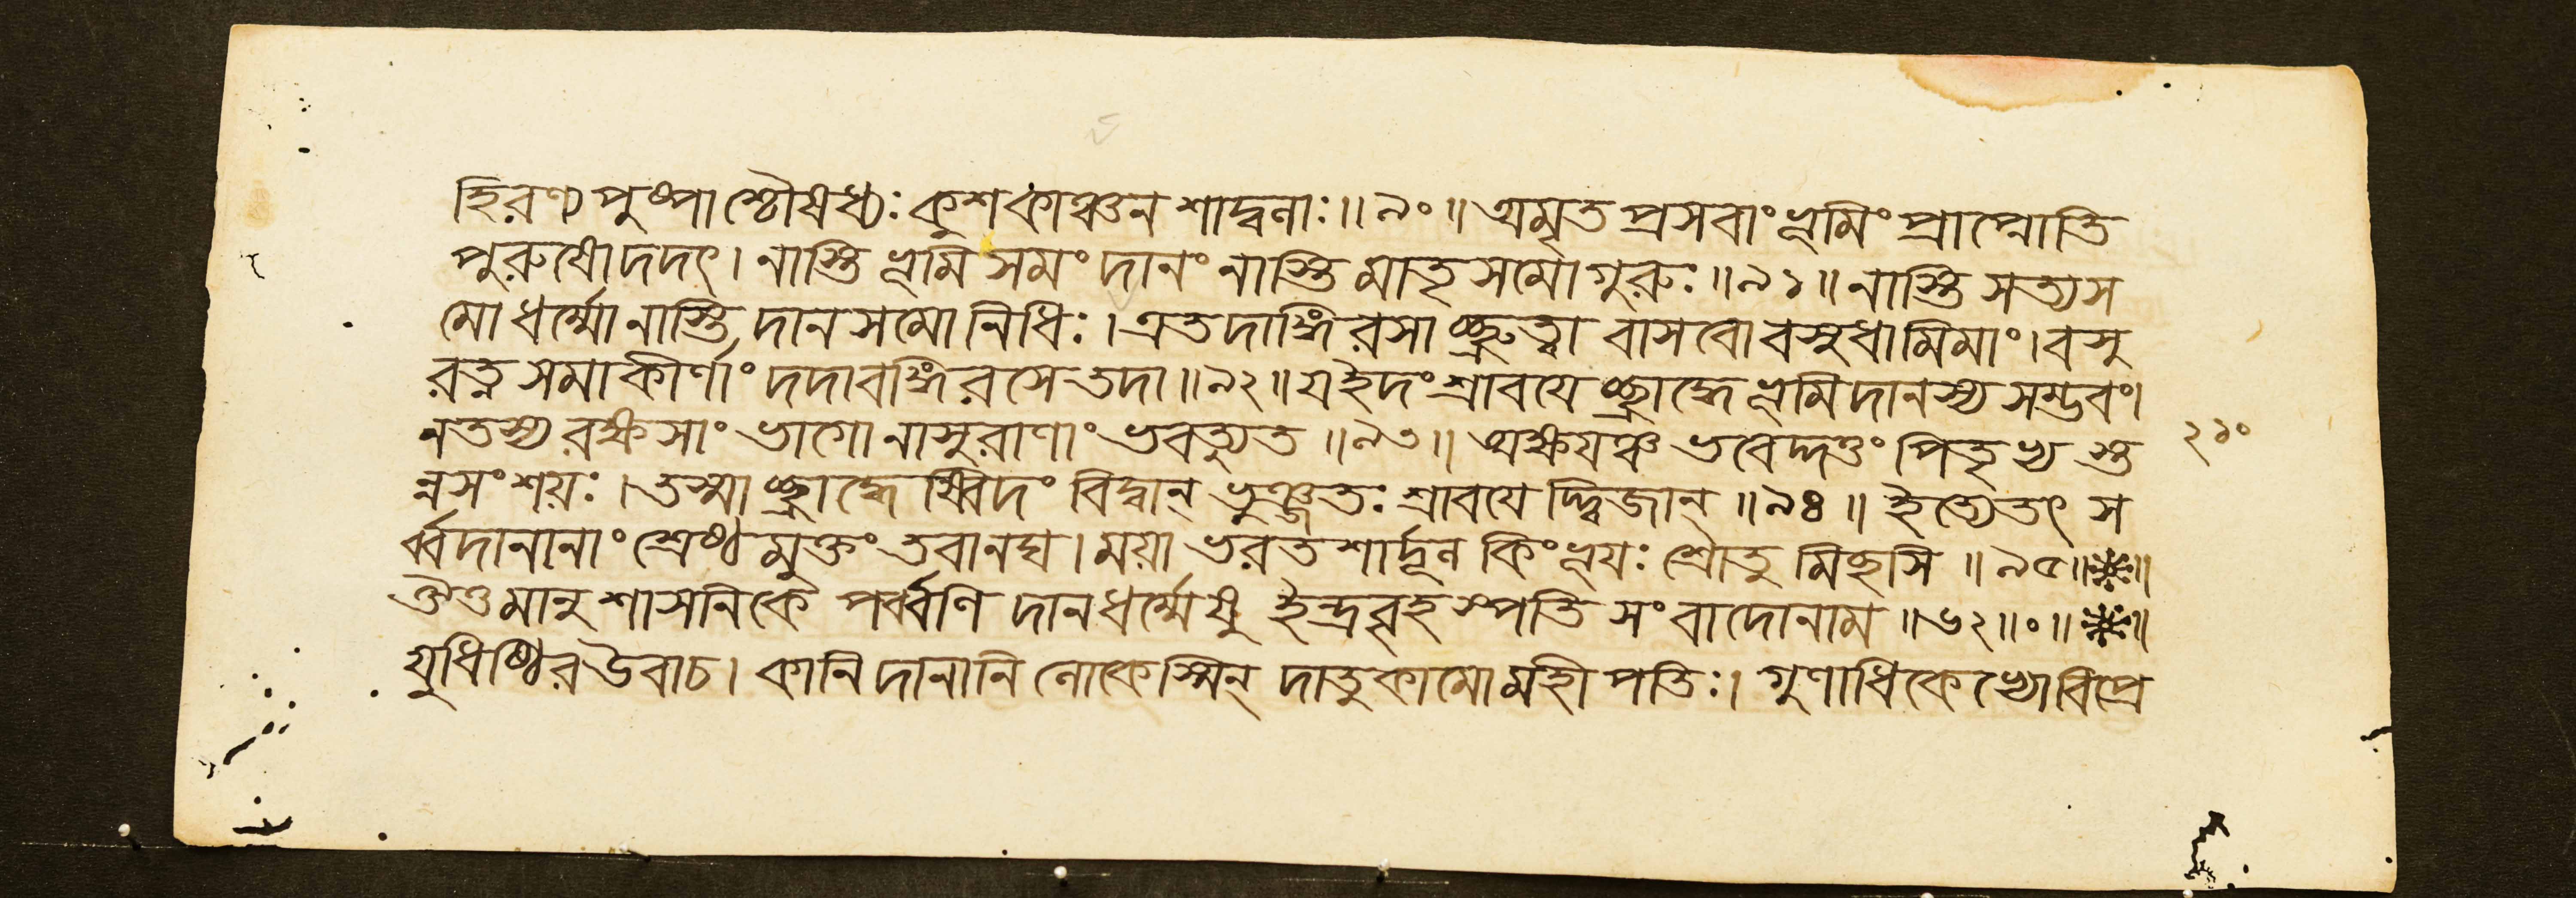 হিরণ্যপুষ্পাশ্চৌষধ্যঃ কুশকাঞ্চনশাদ্বলাঃ॥৯০॥ অমৃতপ্রসবাং ভূমিং প্রাপ্নোতি
পুরুষোদদৎ। নাস্তি ভূমিসমং দানং নাস্তি মাতৃসমোগুরুঃ॥৯১॥ নাস্তি সত্যস
মোধর্ম্মোনাস্তি দানসমোনিধিঃ। এতদাঙ্গিরসাচ্ছ্রুত্বা বাসবোবসুধামিমাং। বসু
রত্নসমাকীর্ণাং দদাবাঙ্গিরসে তদা॥৯২॥ যইদং শ্রাবয়েচ্ছ্রাদ্ধে ভূমিদানস্য সম্ভবং।
নতস্য রক্ষসাং ভাগোনাসুরাণাং ভবত্যুত॥৯৩॥ অক্ষয়ঞ্চ ভবেদ্দত্তং পিতৃভ্যস্ত
ন্নসংশয়ঃ। তস্মাচ্ছ্রাদ্ধেষ্বিদং বিদ্বান্ ভুঞ্জতঃ শ্রাবয়েদ্দ্বিজান্॥৯৪॥ ইত্যেতৎ স
র্ব্বদানানাং শ্রেষ্ঠমুক্তং তবানঘ। ময়া ভরতশার্দ্দূল কিংভূয়ঃ শ্রোতুমিচ্ছসি॥৯৫॥❋॥
ঔতমানুশাসনিকে পর্ব্বণি দানধর্ম্মেষু ইন্দ্রবৃহস্পতি সংবাদোনাম॥৬২॥০॥❋॥
যুধিষ্ঠিরউবাচ। কানি দানানি লোকেস্মিন্ দাতুকামোমহীপতিঃ। গুণাধিকেভ্যোবিপ্রে
২১০